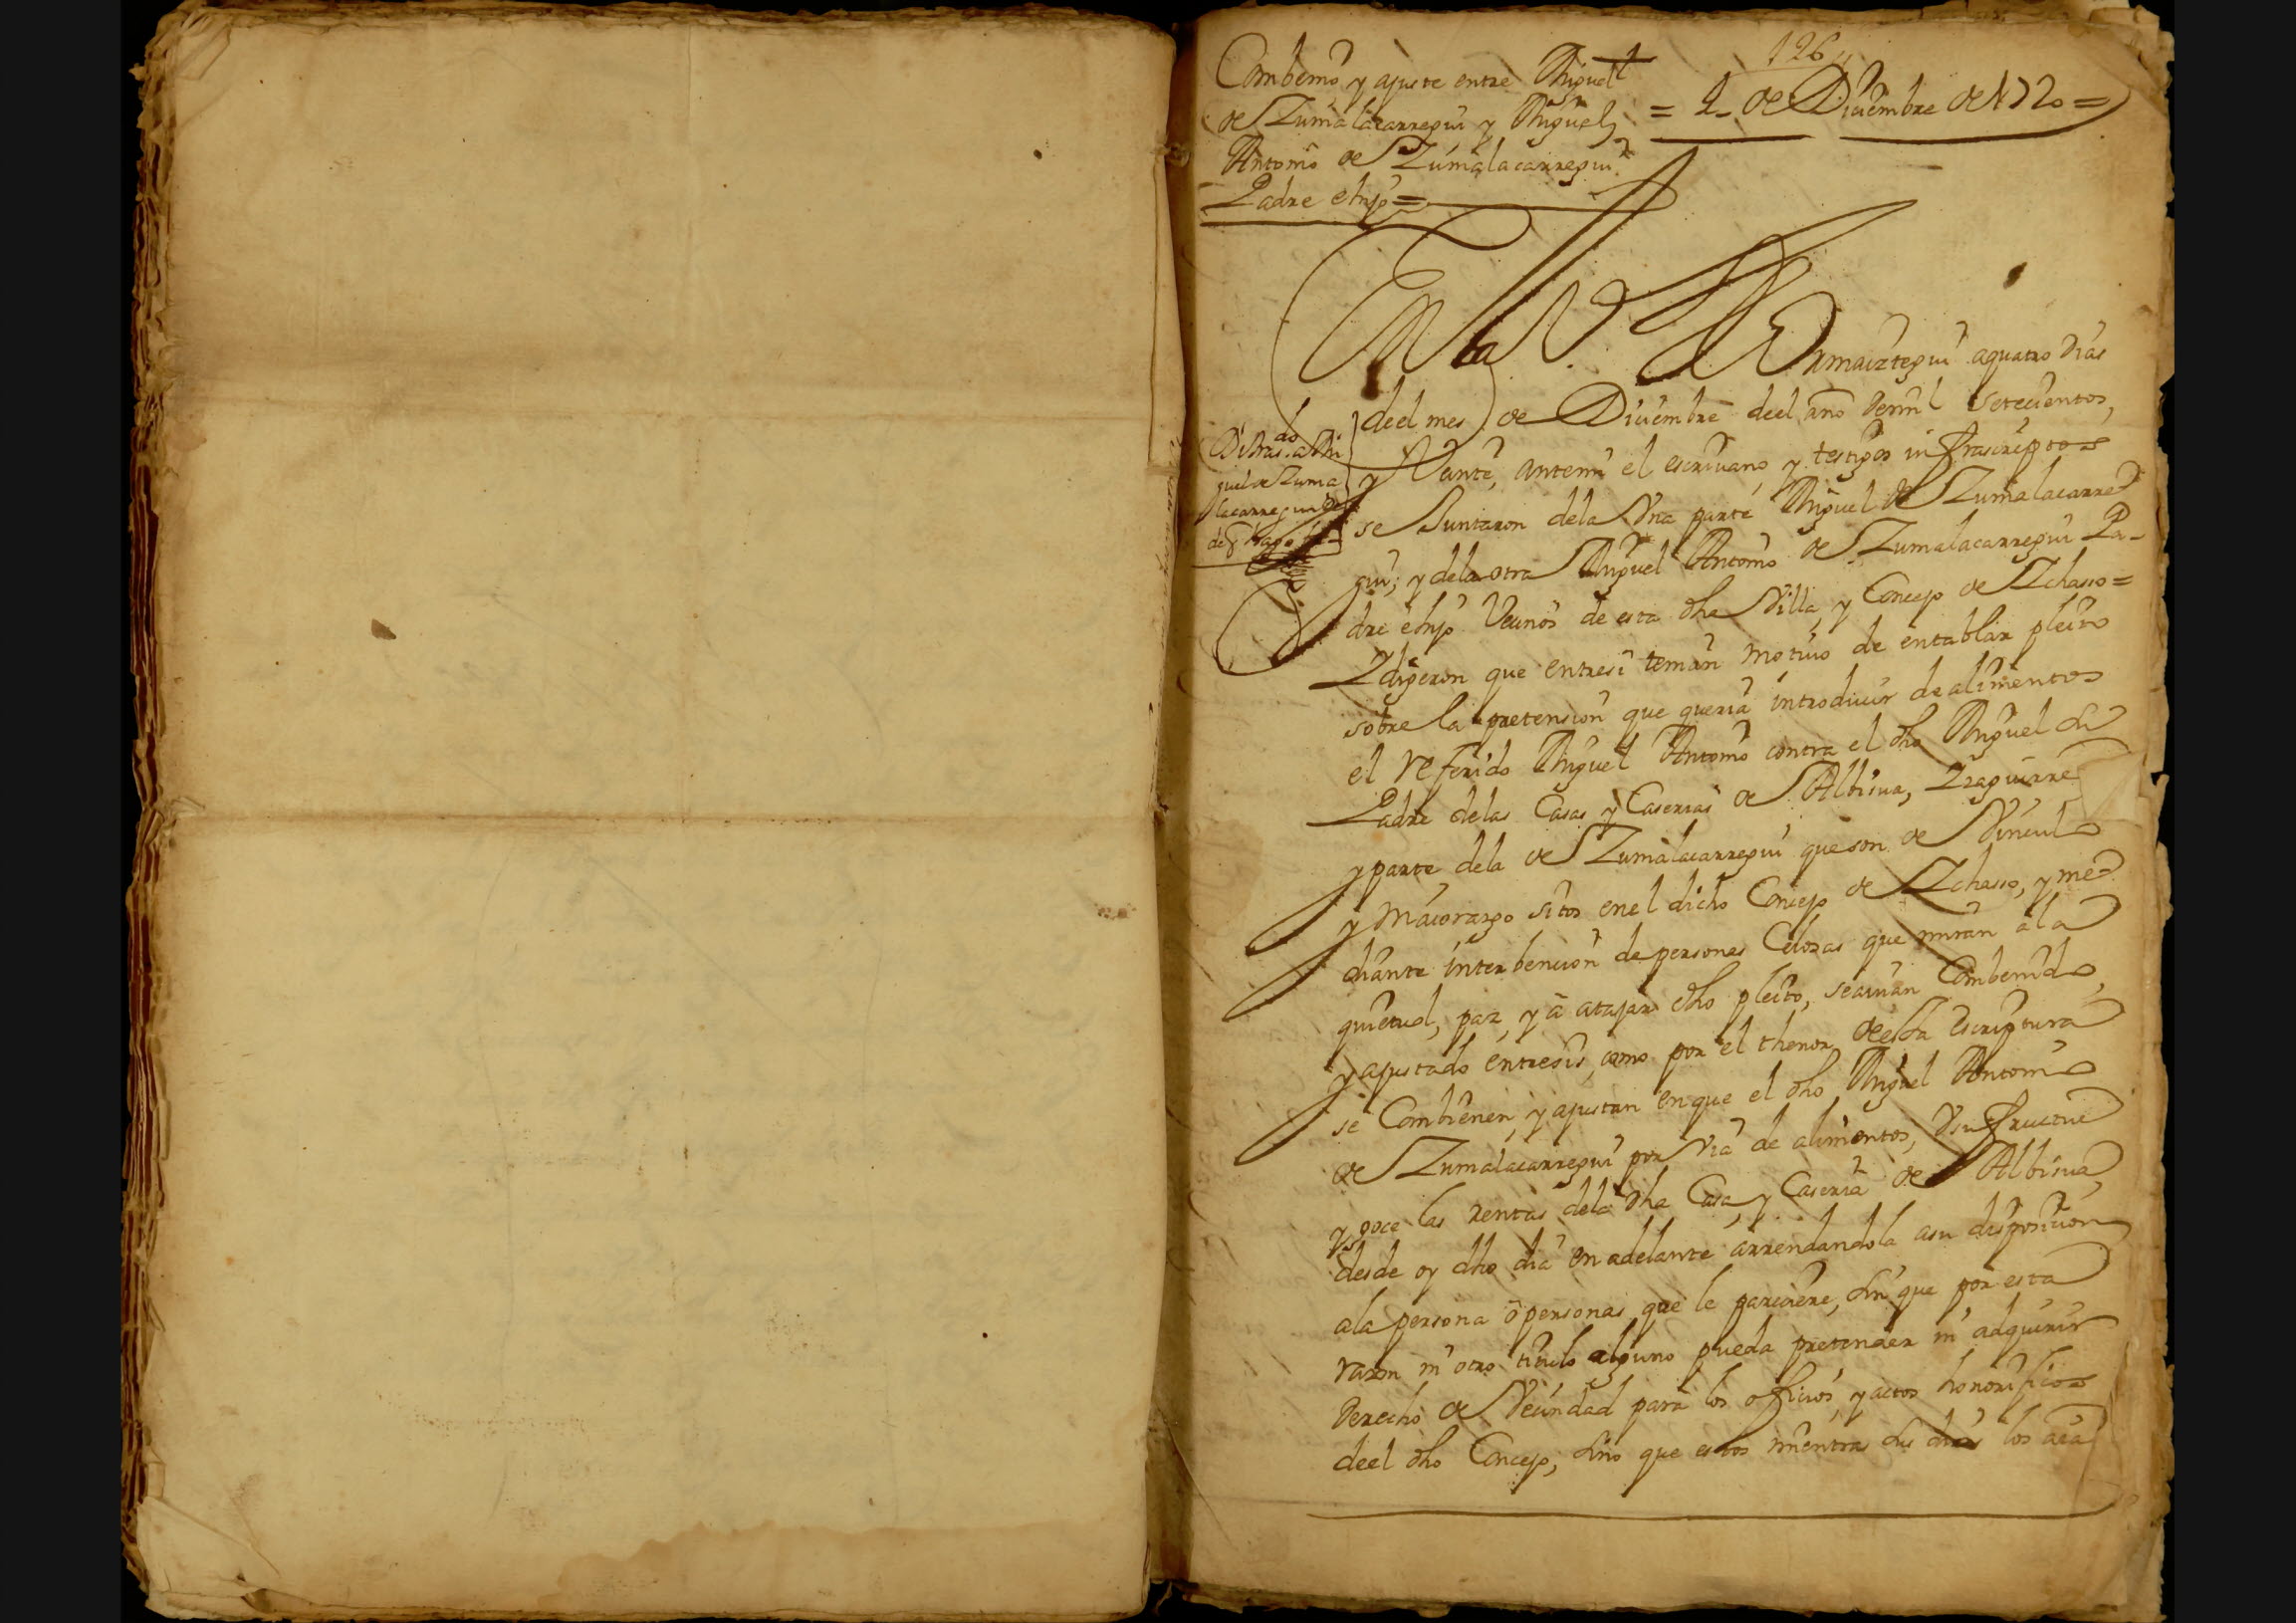 126
Combenio y ajuste entre Miguel
de Zumalacarregui y Miguel
Antonio de Zumalacarregui
Padre e hijo =
= 4 de Diciembre de 1720 =
En la V.ª de Ormaiztegui a quatro dias
deel mes de Diciembre deel año de mil setecientos,
y Veinte, ante mi el escriuano, y testigos infrascriptos
se Juntaron dela Vna parte Miguel de Zumalacarre
gui; y dela otra Miguel Antonio de Zumalacarregui Pa-
dre e hijo Vecinos de esta dha Villa, y Concejo de Ichasso =
Y dijeron que entresi tenian motiuo de entablar pleito
sobre la pretension que queria introducir de alimentos
el referido Miguel Antonio contra el dho Miguel su
Padre delas Casas y Caserias de Albisua, Yraguirre
y parte dela de Zumalacarregui que son de Vinculo
y Maiorazgo sitos enel dicho Concejo de Ichasso, y me
diante interbencion de persones Celosas que miran ala
quietud, paz, y â atajar dho pleito, se auian Combenido,
y ajustado entresis, como por el thenor de esta Escriptura
se Combienen, y ajustan en que el dho Miguel Antonio
de Zumalacarregui por via de alimentos, Vsufructue
y goce las rentas dela dha Casa, y Caseria de Albisua,
desde oy dho dia en adelante arrendandola asu disposicion
ala persona ô personas que le pareciere, sin que por esta
razon ni otro titulo alguno pueda pretender ni adquirir
Derecho de Vecindad para los officios, y actos honorificos
deel dho Concejo, sino que estos mientras sus dias los aia
do
Di tras. a Mi
guel de Zuma
lacarregui